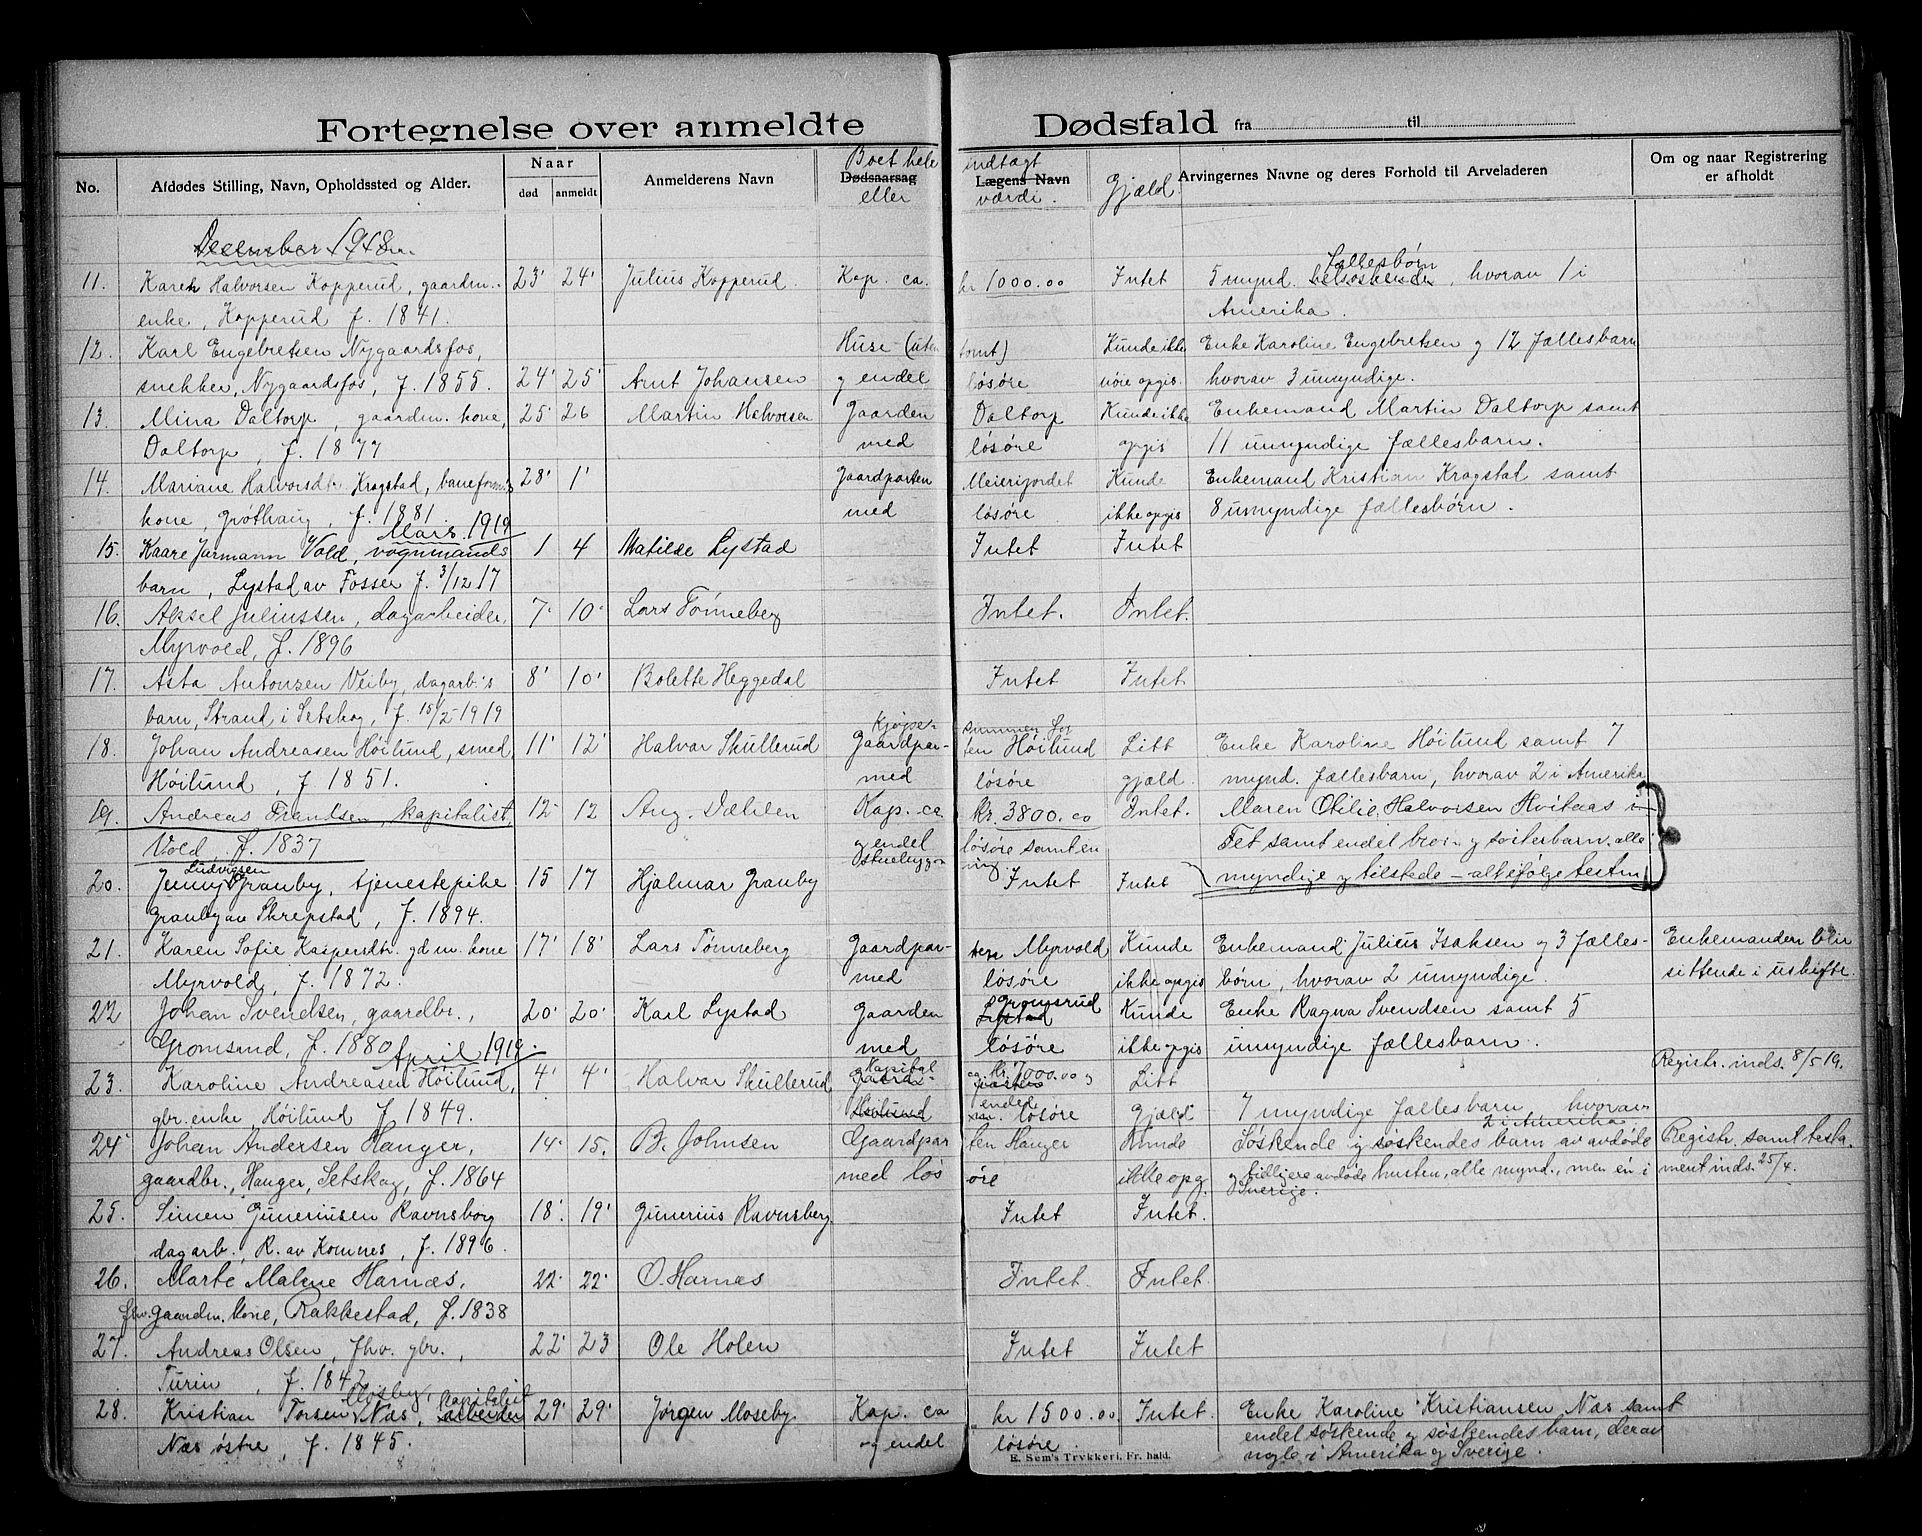 Fortegnelse over anmeldte Dødsfald fra til
No. Afdødes Stilling, Navn, Opholdssted og Alder. Naar død anmeldt Anmelderens Navn Dødsaarsag Lægens Navn Arvingernes Navne og deres Forhold til Arveladeren Om og naar Registrering er afholdt
Boet hele indtægt
eller værdi. Gjæld
December 1918
11. Karen Halvorsen Kopperud, gaardm. 23' 24' Julius Kopperud. Kap. ca. kr 1000.00 Intet 5 mynd. helsøskende fællesbørn, hvorav 1 i
enke, Kopperud f. 1841. Amerika.
12. Karl Engebretsen Nygaardsfos, Huse (uten tomt) Kunde ikke Enke Karoline Engebretsen og 12 fællesbarn
snekker, Nygaardsfos, f. 1855. 24' 25' Arnt Johansen og endel løsøre nøie opgis. hvorav 3 umyndige.
13. Mina Daltorp, gaardm. kone, 25' 26 Martin Halvorsen Gaarden Daltorp Kunde ikke Enkemand Martin Daltorp samt
Daltorp, f. 1877 med løsøre opgis 11 umyndige fællesbarn.
14. Mariane Halvorsdtr. Kragstad, baneform. 28' 1' Gaardparten Meierijordet Kunde Enkemand Kristian Kragstad samt
kone, Grøthaug, f. 1881 med løsøre ikke opgis 8 umyndige fællesbørn.
Mars 1919
15. Kaare Jarmann Vold, vognmands 1 4 Matilde Lystad Intet Intet
barn, Lystad av Fosser f. 3/12 17
16. Aksel Juliussen, dagarbeider, 7' 10' Lars Tønneberg Intet. Intet.
Myrvold, f. 1896
17. Asta Antonsen Veiby, dagarb.'s 8' 10' Bolette Heggedal Intet Intet
barn, Strand i Setskog, f. 15/2 1919
Kjøpe- summen for
18. Johan Andreasen Høilund, smed, 11' 12' Halvar Skullerud Gaardpar- ten Høilund Litt Enke Karoline Høilund samt 7
Høilund, f 1851. med løsøre gjæld. mynd. fællesbarn, hvorav 2 i Amerika
19. Andreas Frandsen, kapitalist, 12' 12 Aug. Dæhlen Kap. ca kr. 3800.00 Intet. Maren Otilie Halvorsen Hvitaas i
Vold, f. 1837 og endel løsøre samt en Fet samt endel bror- og søsterbarn, alle
Ludvigsen
20. Jenny Granby, tjenestepike 15 17 Hjalmar Granby Intet Intet myndige og tilstede – alt ifølge testm
Granby av Skrepstad, f. 1894.
21. Karen Sofie Kaspersdtr. gdm. kone 17' 18' Lars Tønneberg Gaardpar- ten Myrvold Kunde Enkemand Julius Isaksen og 3 fælles- Enkemanden blir
Myrvold, f. 1872. med løsøre ikke opgis børn, hvorav 2 umyndige. sittende i uskifte.
22 Johan Svendsen, gaardbr., 20' 20' Karl Lystad Gaarden Gromsrud Kunde Enke Ragna Svendsen samt 5
Gromsrud, f. 1880 med løsøre ikke opgis umyndige fællesbarn.
April 1919.
23. Karoline Andreasen Høilund, 4' 4' Halvar Skullerud Kapital ca. kr. 1000.00 og Litt Registr. inds. 8/5 19.
gbr. enke, Høilund f 1849. endel løsøre gjæld 7 myndige fællesbarn hvorav
2 i Amerika
24 Johan Andersen Hanger, 14' 15. B. Johnsen Gaardpar ten Hanger Kunde Søskende og søskendes barn av avdøde Registr. samt testa-
gaardbr., Hanger, Setskog, f. 1864 med løs øre ikke opg. og tidligere avdøde hustru, alle mynd., men én i ment inds. 25/4.
Sverige.
25. Simen Guneriusen Ravnsborg 18'. 19' Gunerius Ravnsberg. Intet Intet.
dagarb., R. av Komnes, f. 1896.
26. Marte Malene Harnæs, 22' 22' O. Harnæs Intet. Intet.
fhv. gaardm. kone, Rakkestad, f. 1838
27. Andreas Olsen, fhv. gbr., 22' 23 Ole Holen Intet Intet
Turin, f. 1842
Mosby, kapitalist
28. Kristian Torsen Næs, arbeider 29' 29' Jørgen Moseby Kap. ca kr 1500.00. Intet. Enke Karoline Kristiansen Næs samt
Næs østre, f. 1845. og endel løsøre. endel søskende og søskendes barn, derav
nogle i Amerika og Sverige.
E. Sem's Trykkeri, Fr. hald.